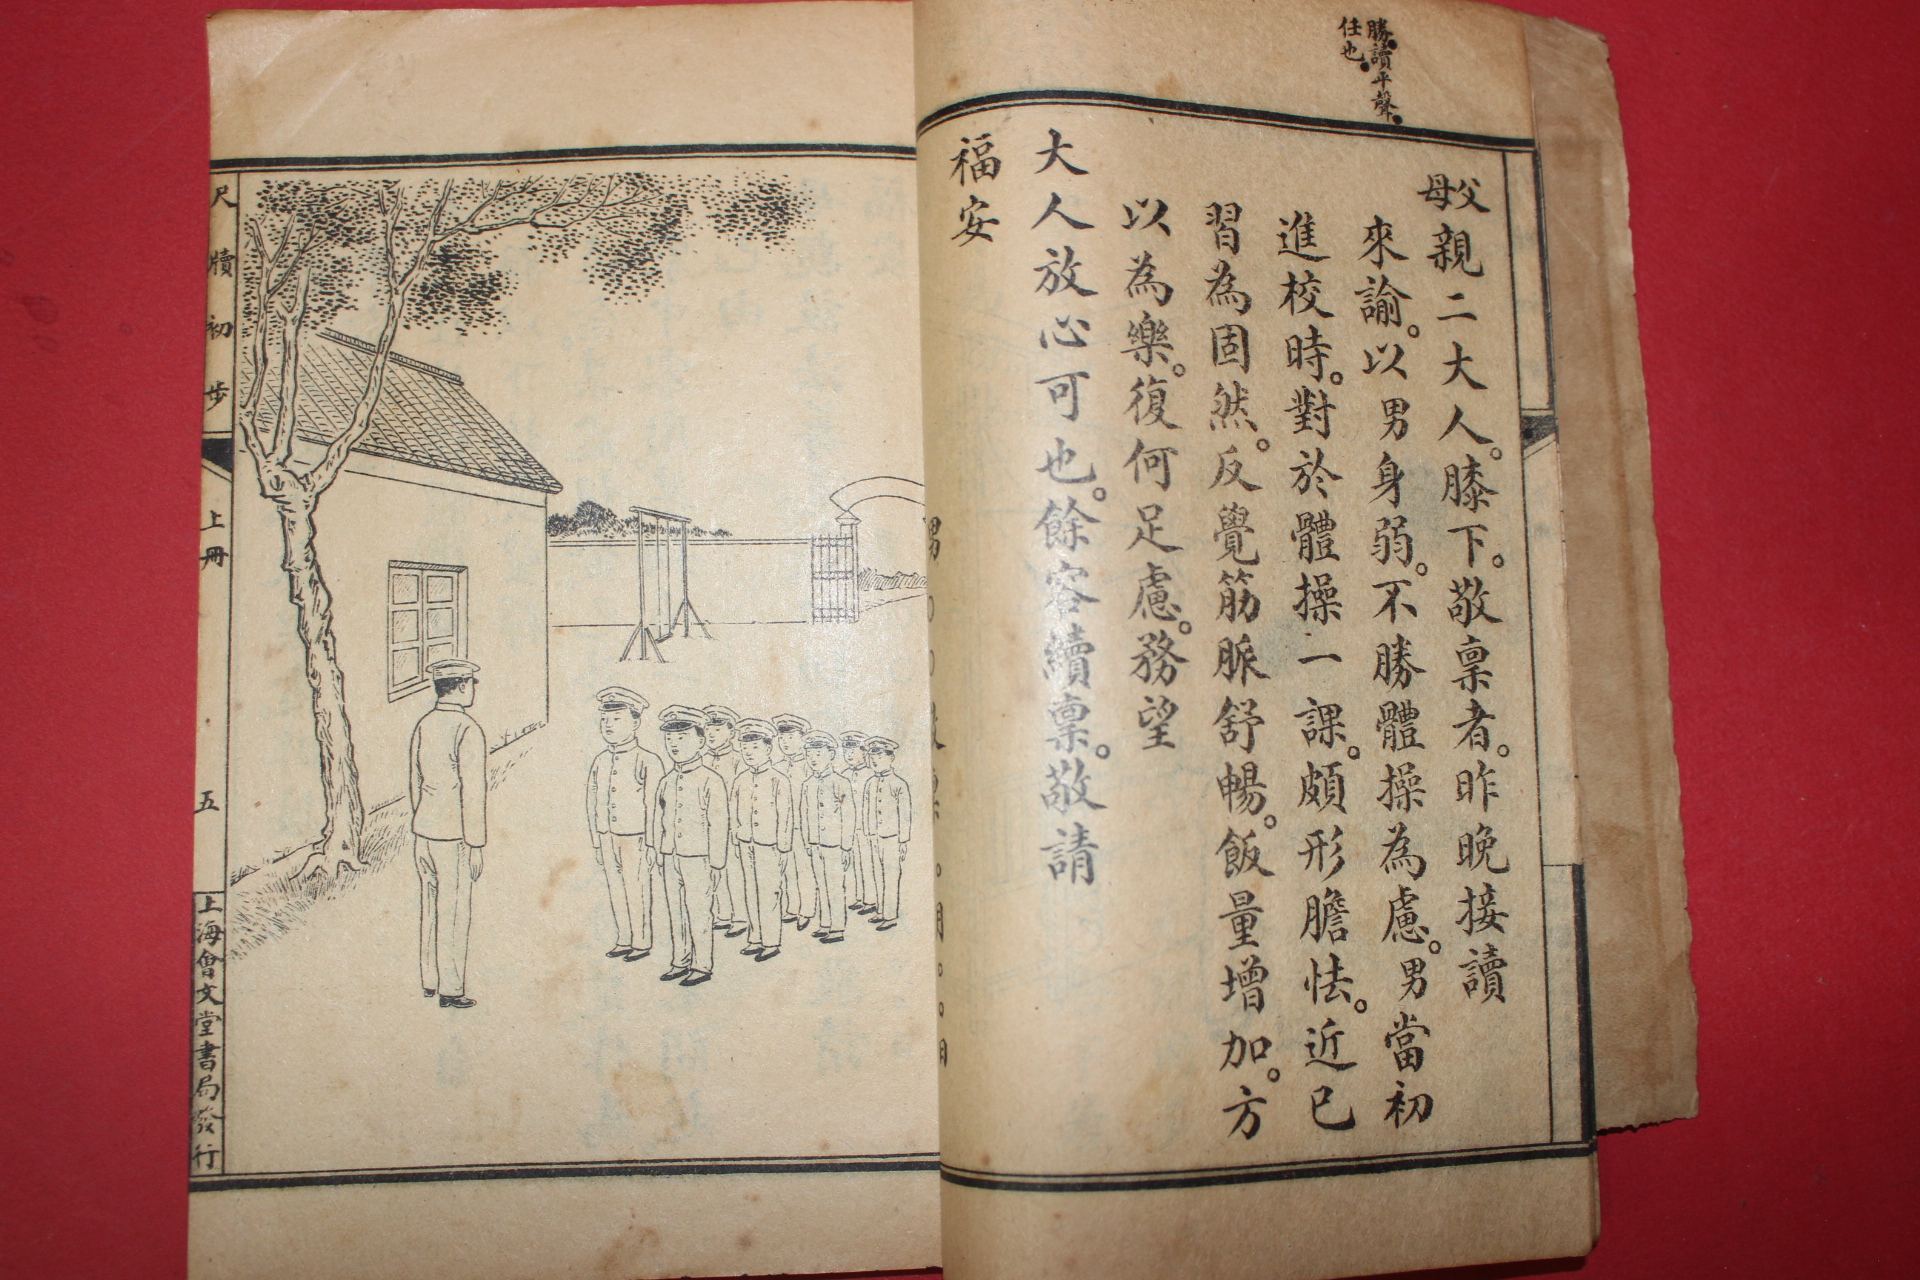 勝。讀平聲。
任也。
父母親二大人。膝下。敬稟者。昨晚接讀
來諭。以男身弱。不勝體操為慮。男當初
進校時。對於體操一課。頗形膽怯。近已
習為固然。反覺筋脈舒暢。飯量增加。方
以為樂。復何足慮。務望
大人放心可也。餘容續稟。敬請
福安
男〇〇
。月。。日
尺牘初步 上冊 五 上海會文堂書局發行